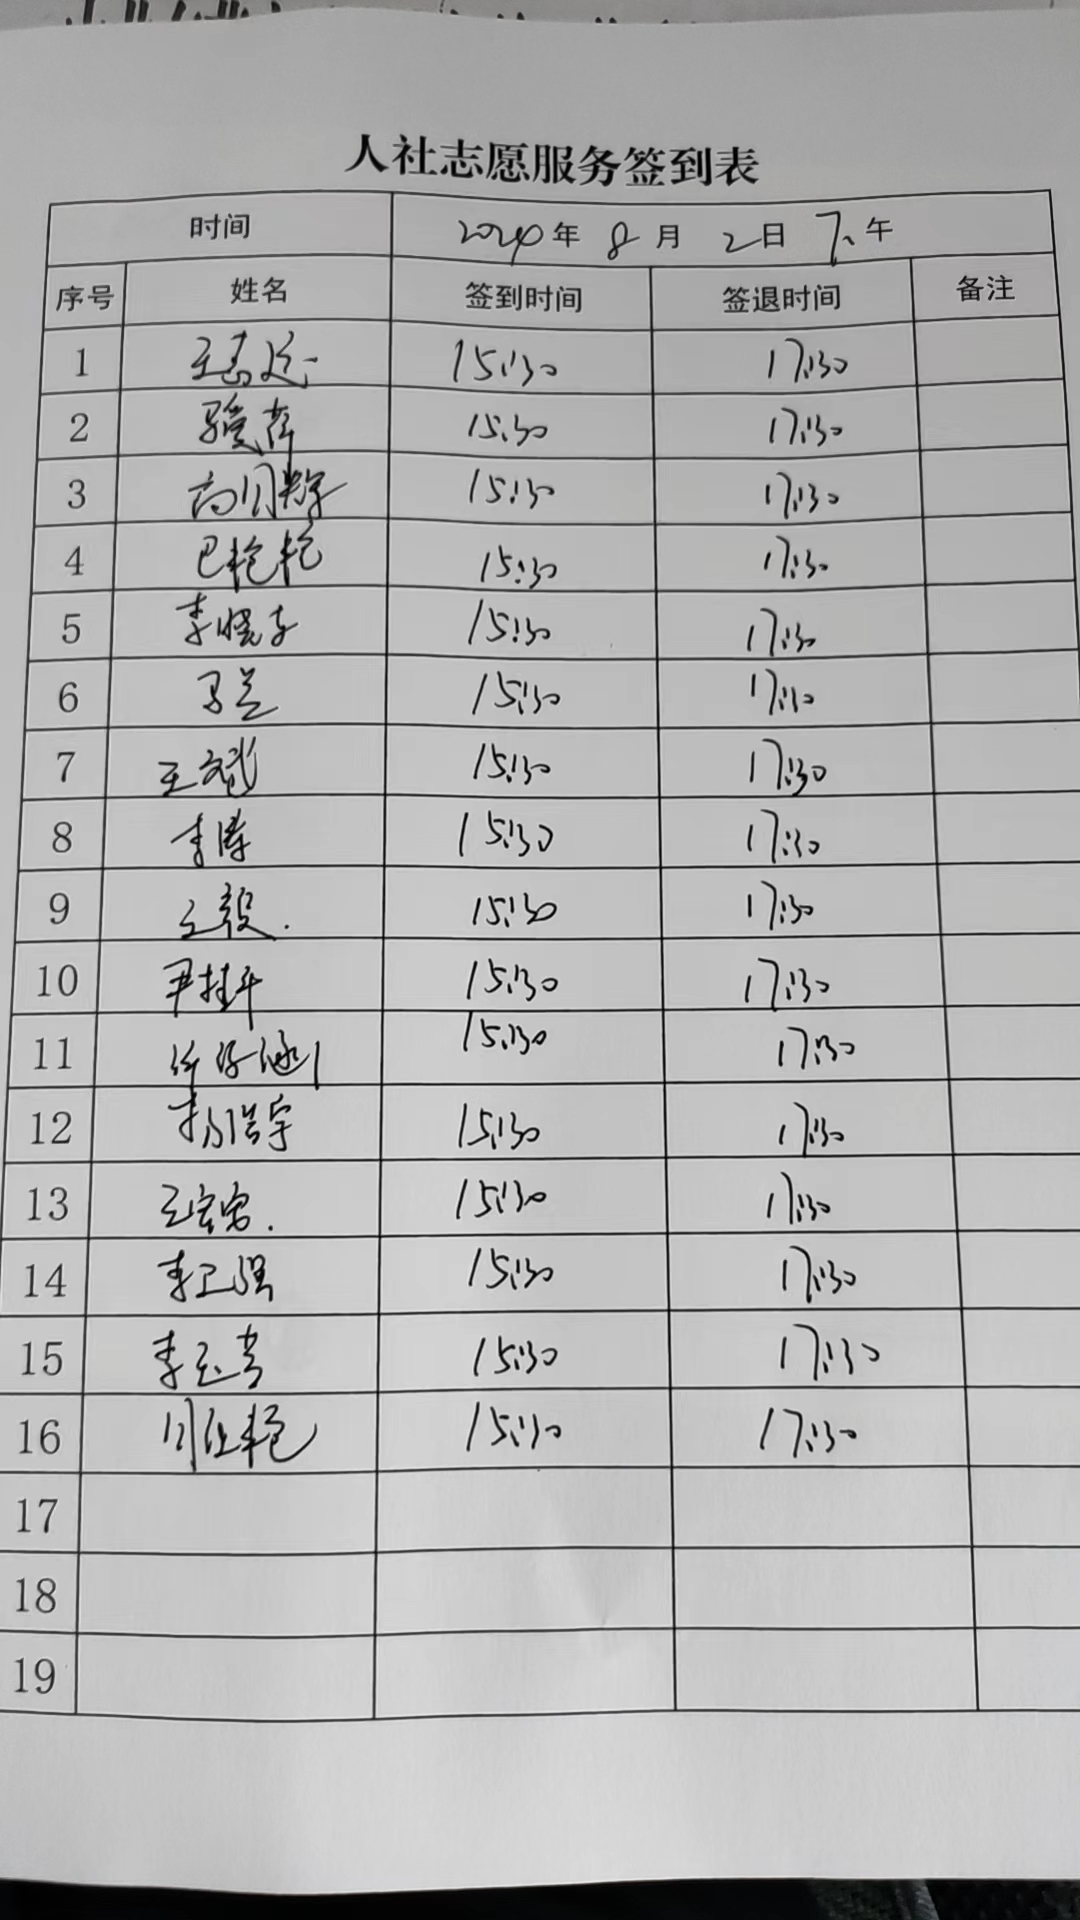 人社志愿服务签到表
时间 2024年 8月 2日 下午
序号 姓名 签到时间 签退时间 备注
1 王志 15:30 17:30
2 15:30 17:30
3 15:30 17:30
4 巴艳艳 15:30 17:30
5 李晓 15:30 17:30
6 马兰 15:30 17:30
7 王斌 15:30 17:30
8 李涛 15:30 17:30
9 王毅. 15:30 17:30
10 尹桂平 15:30 17:30
11 15:30 17:30
12 杨浩宇 15:30 17:30
13 王 15:30 17:30
14 李卫强 15:30 17:30
15 李玉 15:30 17:30
16 艳 15:30 17:30
17
18
19